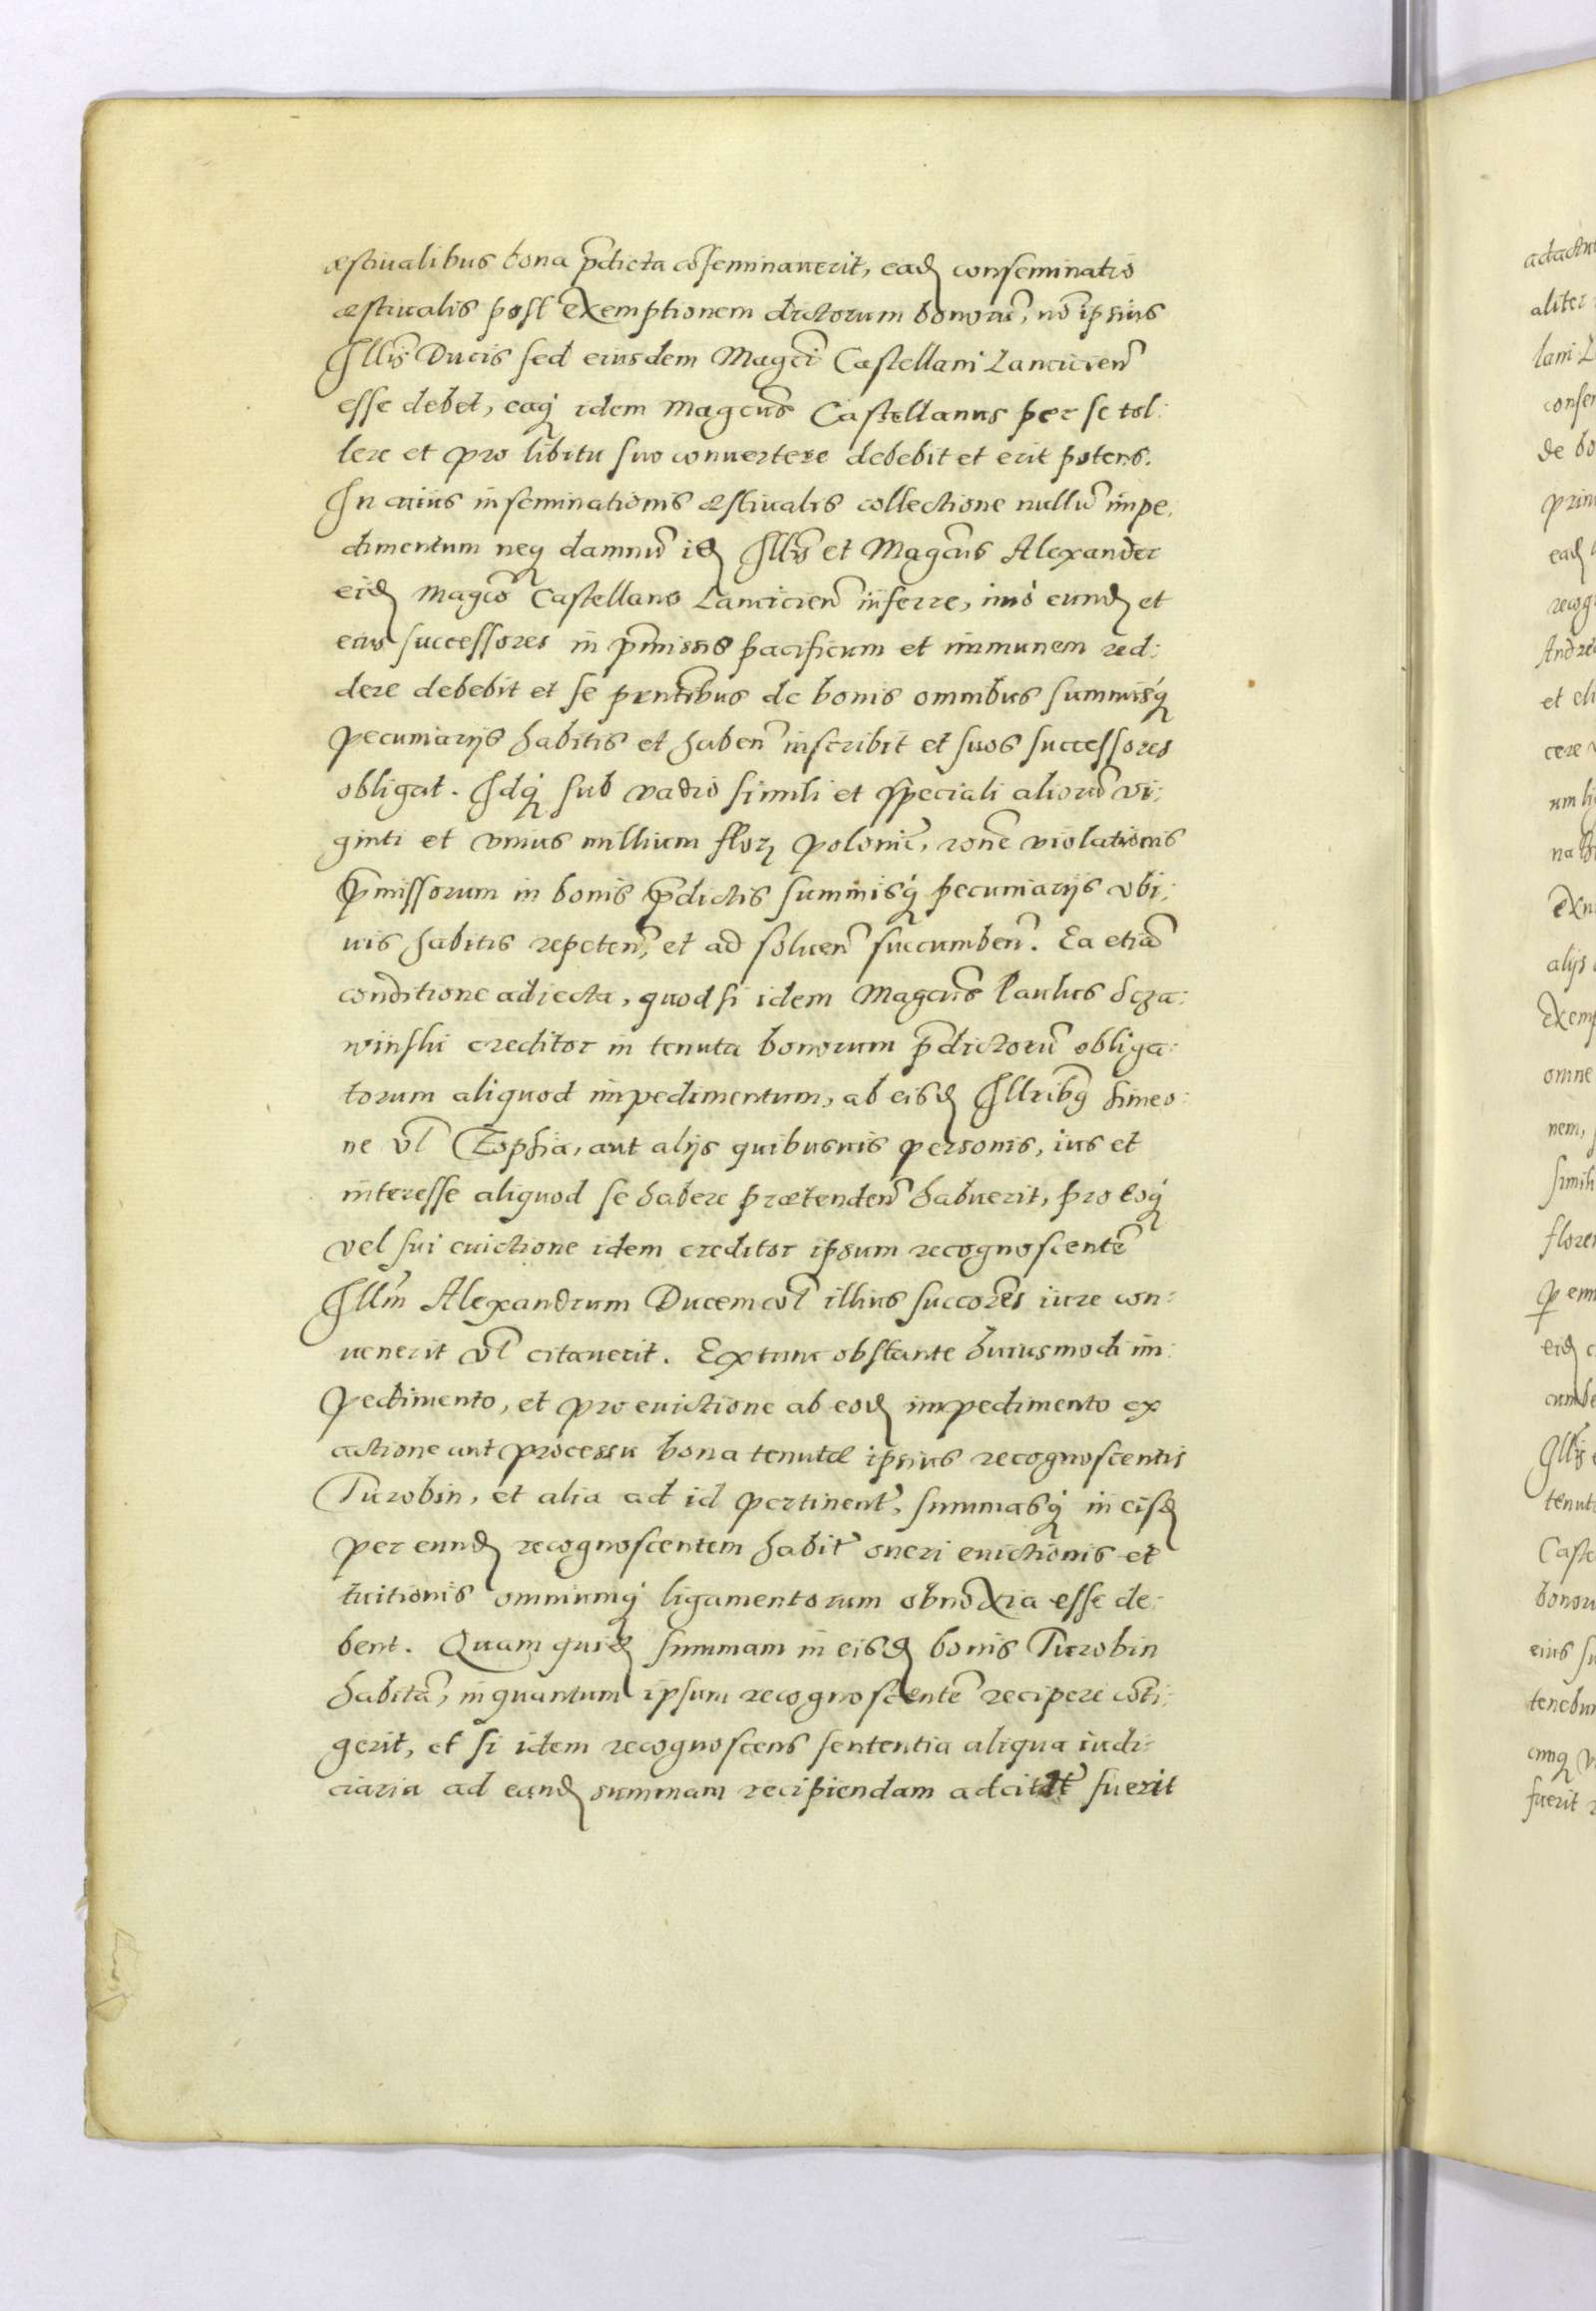 æstiualibus bona p̃dicta cõseminauerit, eadʒ conseminatio
æstiualis post exemptionem dictorum bonorũ, nõ ipsius
Illis̃ Ducis sed eiusdem Magc̃i Castellani Lancicien̄
esse debet, eaq́ idem Magcus̃ Castellanus per se tol:
lere et pro libitu suo conuertere debebit et erit potens.
In cuius inseminationis æstiualis collectione nullũ impe:
dimentum neq damnũ idʒ Illis̃ et Magcus̃ Alexander
eidʒ Magcõ Castellano Lancicien̄ inferre, imò eundʒ et
eius successores in p̃missis pacificum et immunem red:
dere debebit et se pñtibus de bonis omnibus summisq́
pecuniarijs habitis et haben̄ inscribit et suos successores
obligat. Idq́ sub vadio simili et speciali aliorũ vi:
ginti et vnius millium flor Polonic̃, rone violationis
p̃missorum in bonis p̃dictis summisq́ pecuniarijs vbi:
uis habitis repeten̄, et ad soluen̄ succumben̄. Ea etiã
conditione adiecta, quod si idem Magcus̃ Paulus Scza:
winski creditor in tenuta bonorum p̃dictorũ obliga:
torum aliquod impedimentum, ab eisdʒ Illribq̃ Simeo:
ne vl̃ Zophia, aut alijs quibusuis personis, ius et
interesse aliquod se habere prætenden̄ habuerit, pro eoq́
vel sui euictione idem creditor ipsum recognoscentẽ
Illm̃ Alexandrum Ducem vl̃ illius succores̃ iure con:
uenerit vl̃ citauerit. Extunc obstante huiusmodi im:
pedimento, et pro euictione ab eodʒ impedimento ex
actione aut processu bona tenutæ ipsius recognoscentis
Turobin, et alia ad id pertinent̃, summasq́ in eisdʒ
per eundʒ recognoscentem habit̃ oneri euictionis et
tuitionis omniumq́ ligamentorum obnoxia esse de:
bent. Quam quidʒ summam in eisdʒ bonis Turobin
habitã, inquantum ipsum recognoscentẽ recipere cõti:
gerit, et si idem recognoscens sententia aliqua iudi:
ciaria ad eandʒ summam recipiendam adcitat̃ fuerit